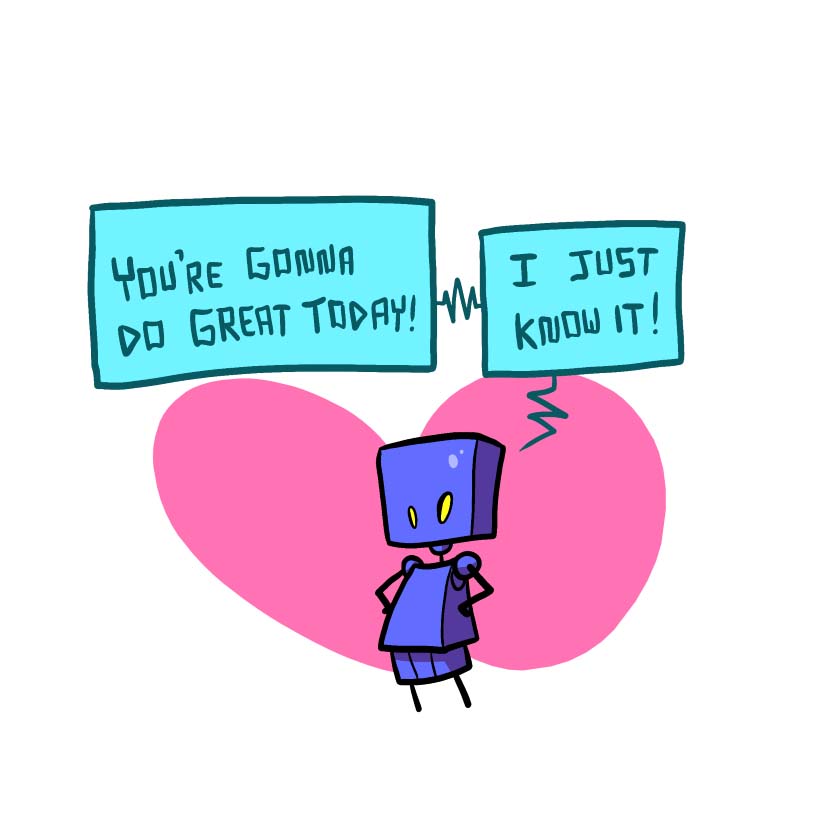 You're Gonna
do Great Today!
I just
know it!